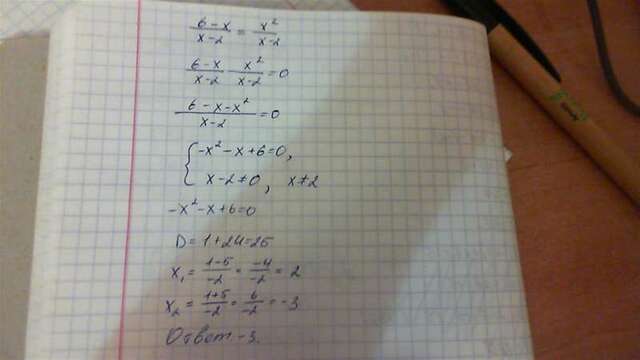 (6-x)/(x-2) = x²/(x-2)
(6-x)/(x-2) - x²/(x-2) = 0
(6-x-x²)/(x-2) = 0
{ -x²-x+6=0,
x-2≠0, x≠2
-x²-x+6=0
D=1+24=25
x₁ = (1-5)/(-2) = (-4)/(-2) = 2
x₂ = (1+5)/(-2) = 6/(-2) = -3
Ответ -3.